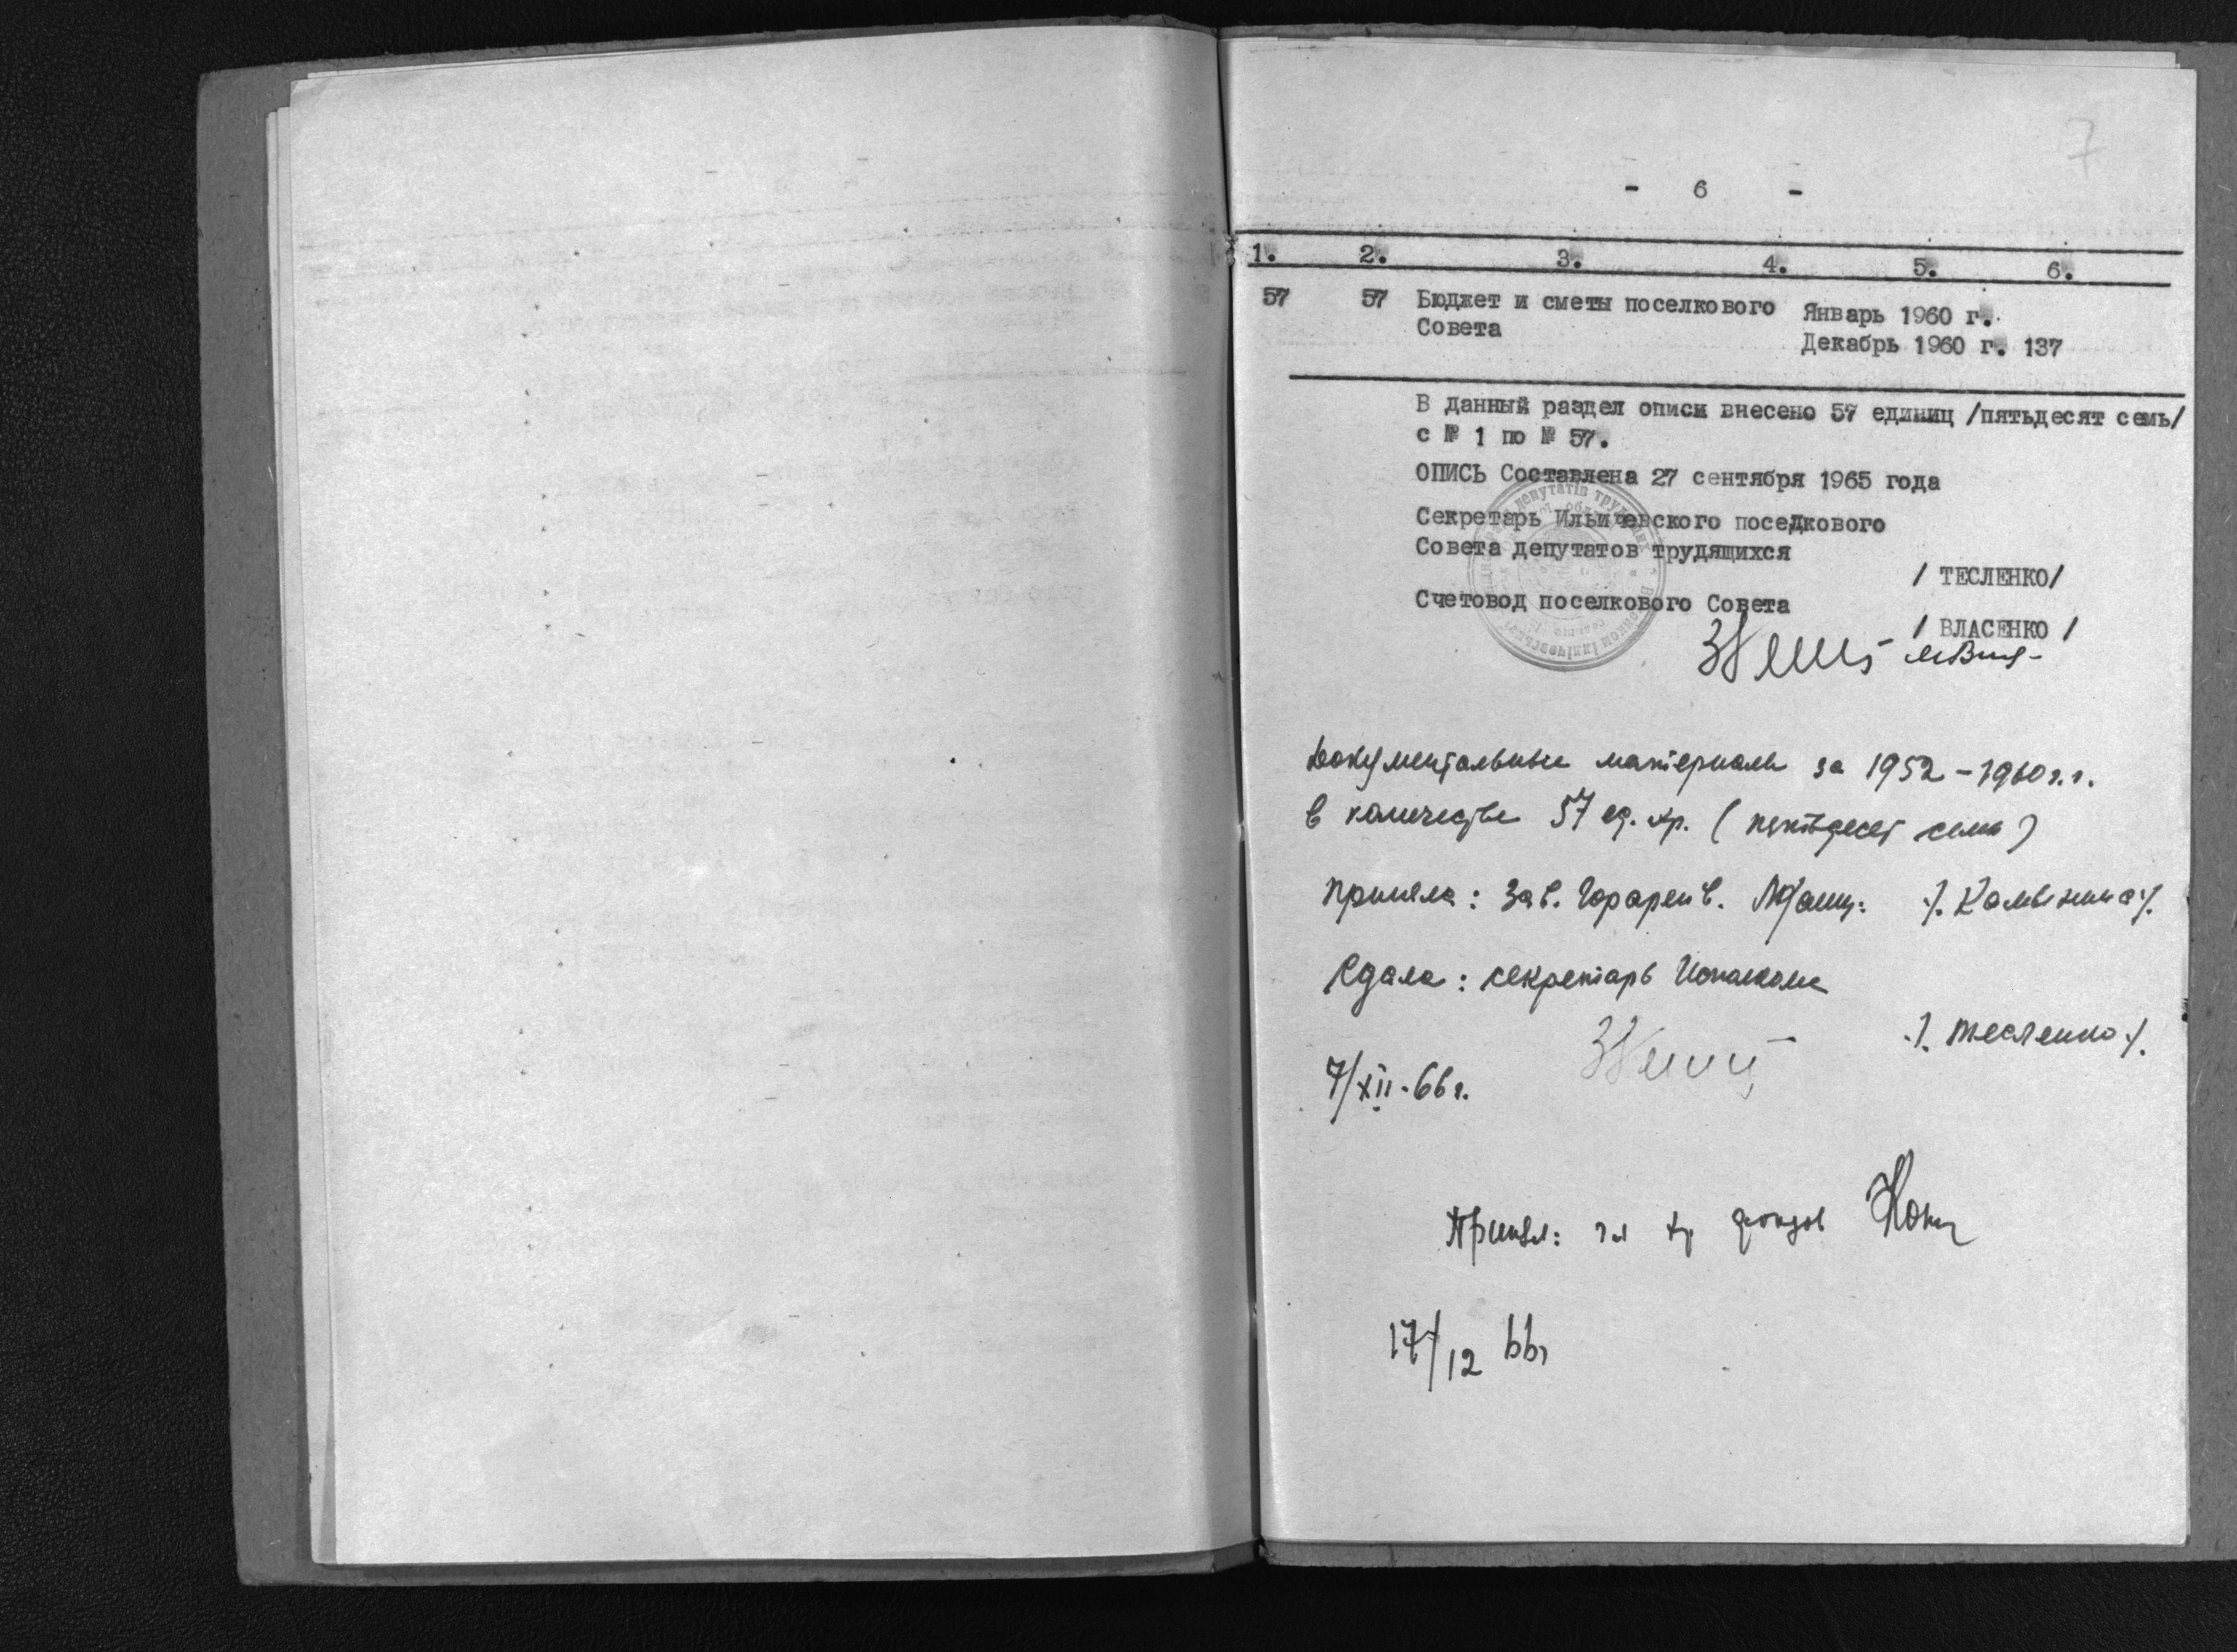 7
- 6 -
1. 2. 3. 4. 5. 6.
57 57 Бюджет и сметы поселкового Январь 1960 г.
Совета Декабрь 1960 г. 137
В данный раздел описи внесено 57 единиц /пятьдесят семь/
с № 1 по № 57.
ОПИСЬ Составлена 27 сентября 1965 года
Секретарь Ильичевского поселкового
Совета депутатов трудящихся
/ ТЕСЛЕНКО/
Счетовод поселкового Совета
/ ВЛАСЕНКО /
депутатів трудящих
Документальные материалы за 1952 - 1960 г.г.
в количестве 57 ед. хр. ( пятьдесят семь )
Приняла: Зав.
Сдала: секретарь
/. Тесленко /.
7/XII-66 г.
Принял: гл хр фондов
17/12 66г